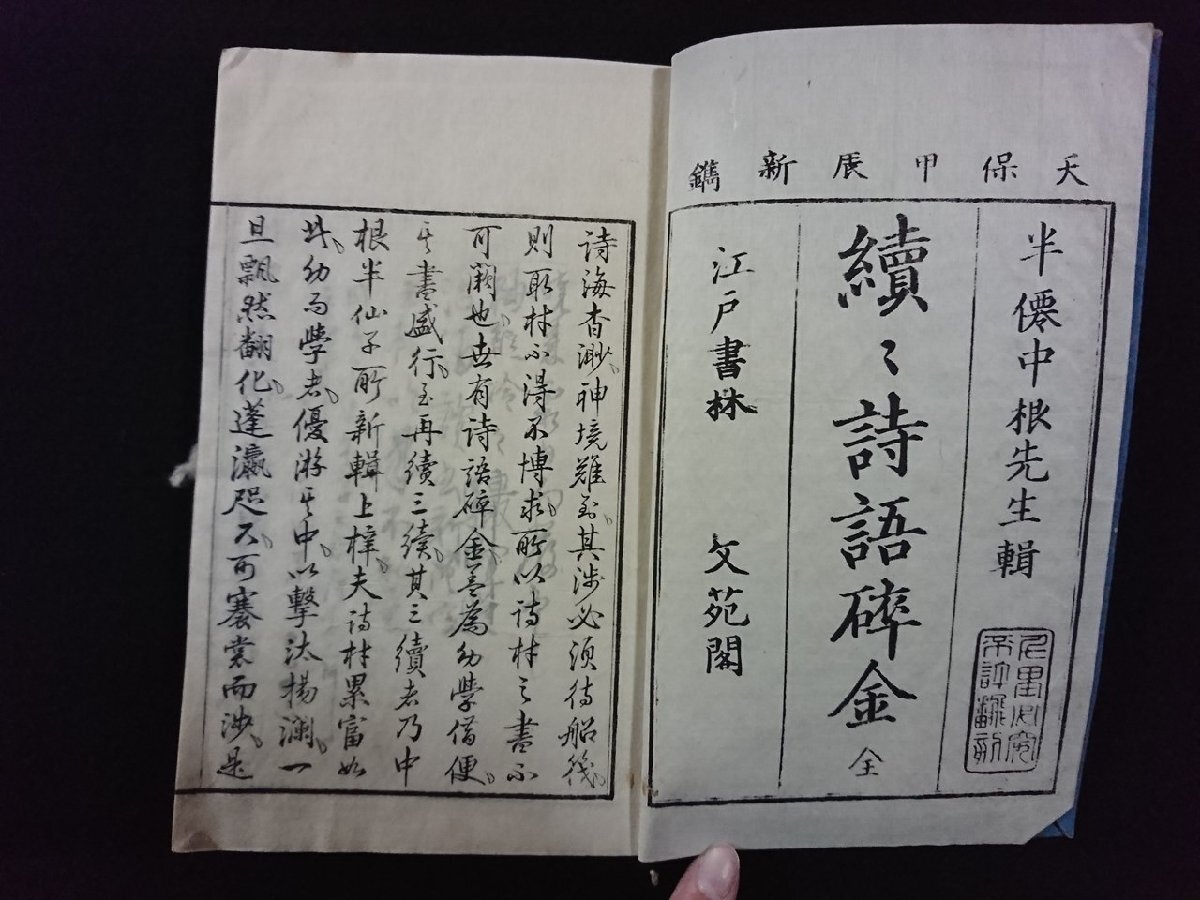 天保甲辰新鐫
半僊中根先生輯
千里必究
不許翻刻
續〻詩語碎金 全
江戶書林 文苑閣
詩海杳渺神境難至其涉必須待船筏
則取材不得不博求所以詩材之書不
可闕也世有詩語碎金盖為幼學備便
其書盛行至再續三續其三續者乃中
根半仙子所新輯上梓夫詩材累富如
此幼而學者優游其中以擊汰揚瀾一
旦飄然翻化蓬瀛咫尺可褰裳而涉是